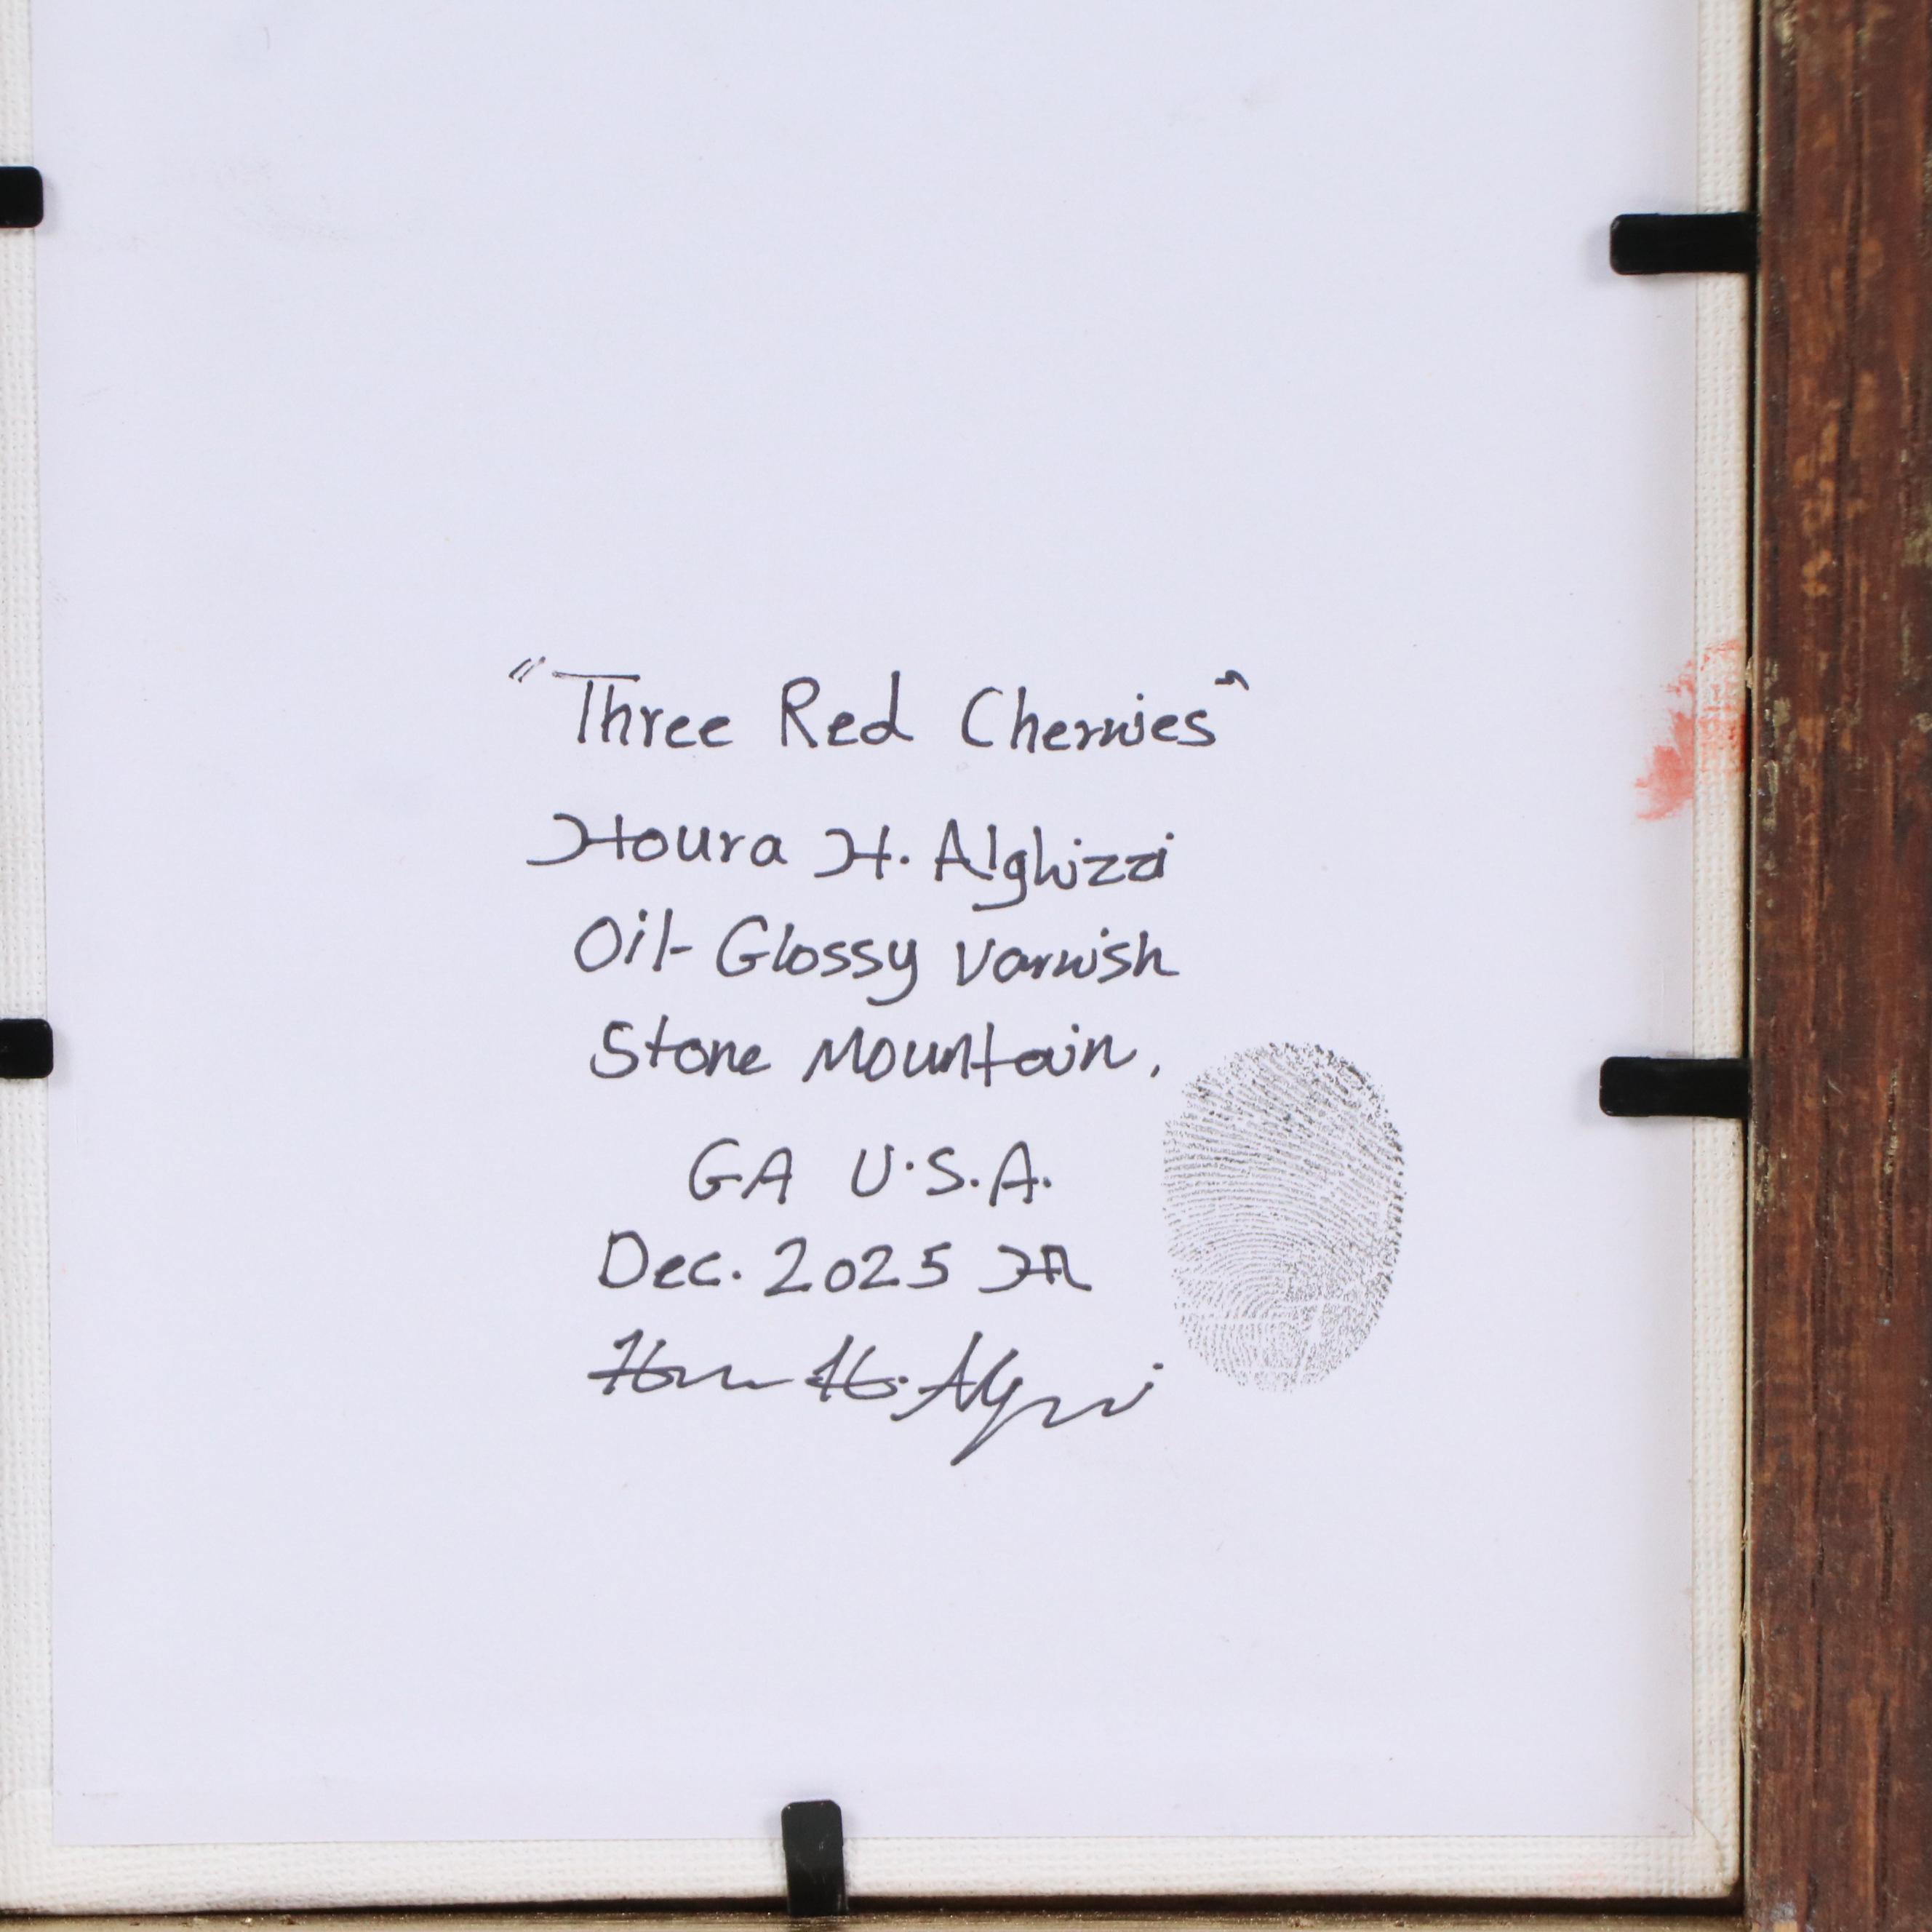 "Three Red Cherries"
Houra H. Alghizzi
Oil- Glossy Varnish
Stone Mountain,
GA U.S.A.
Dec. 2025